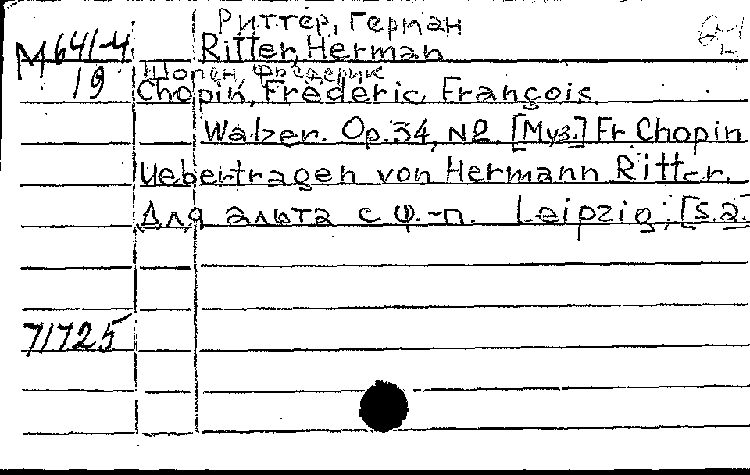 Риттер, Герман
М 641-4 Ritter, Herman
19 Шопен, Фредерик
Chopin, Frédéric François.
Walzer. Op. 34, N2. [Муз.] Fr. Chopin
Uebertragen von Hermann Ritter.
Для альта с ф.-п. Leipzig; [s.a.]
71725